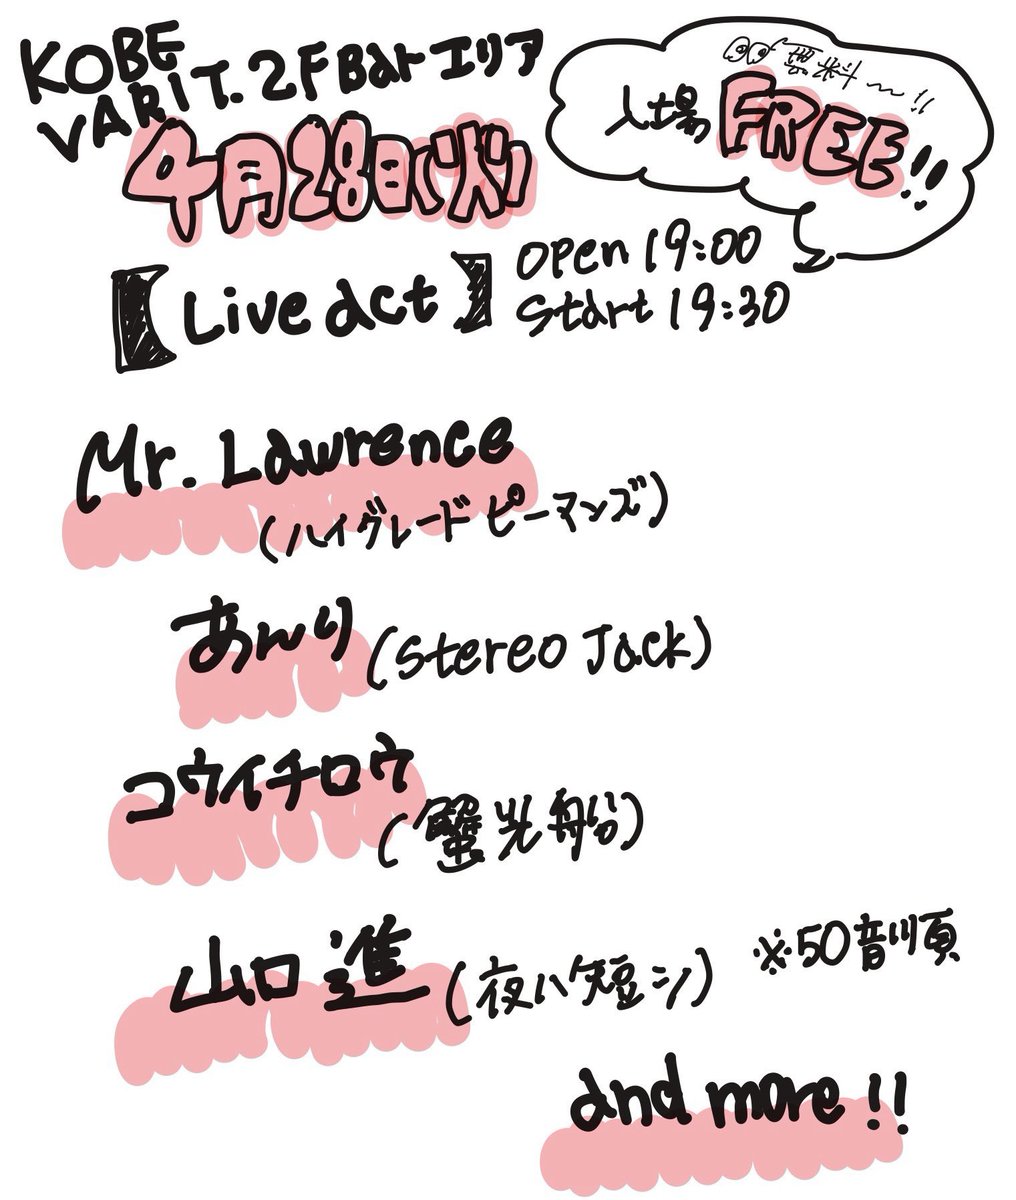 KOBE
VARIT. 2F Barエリア
4月28日(火)
無料〜!!
入場FREE!!
【Live act】
open 19:00
start 19:30
Mr. Lawrence
(ハイグレードピーマンズ)
あんり(Stereo Jack)
コウイチロウ
(蟹光船)
山口進(夜ハ短シ)
※50音順
and more!!